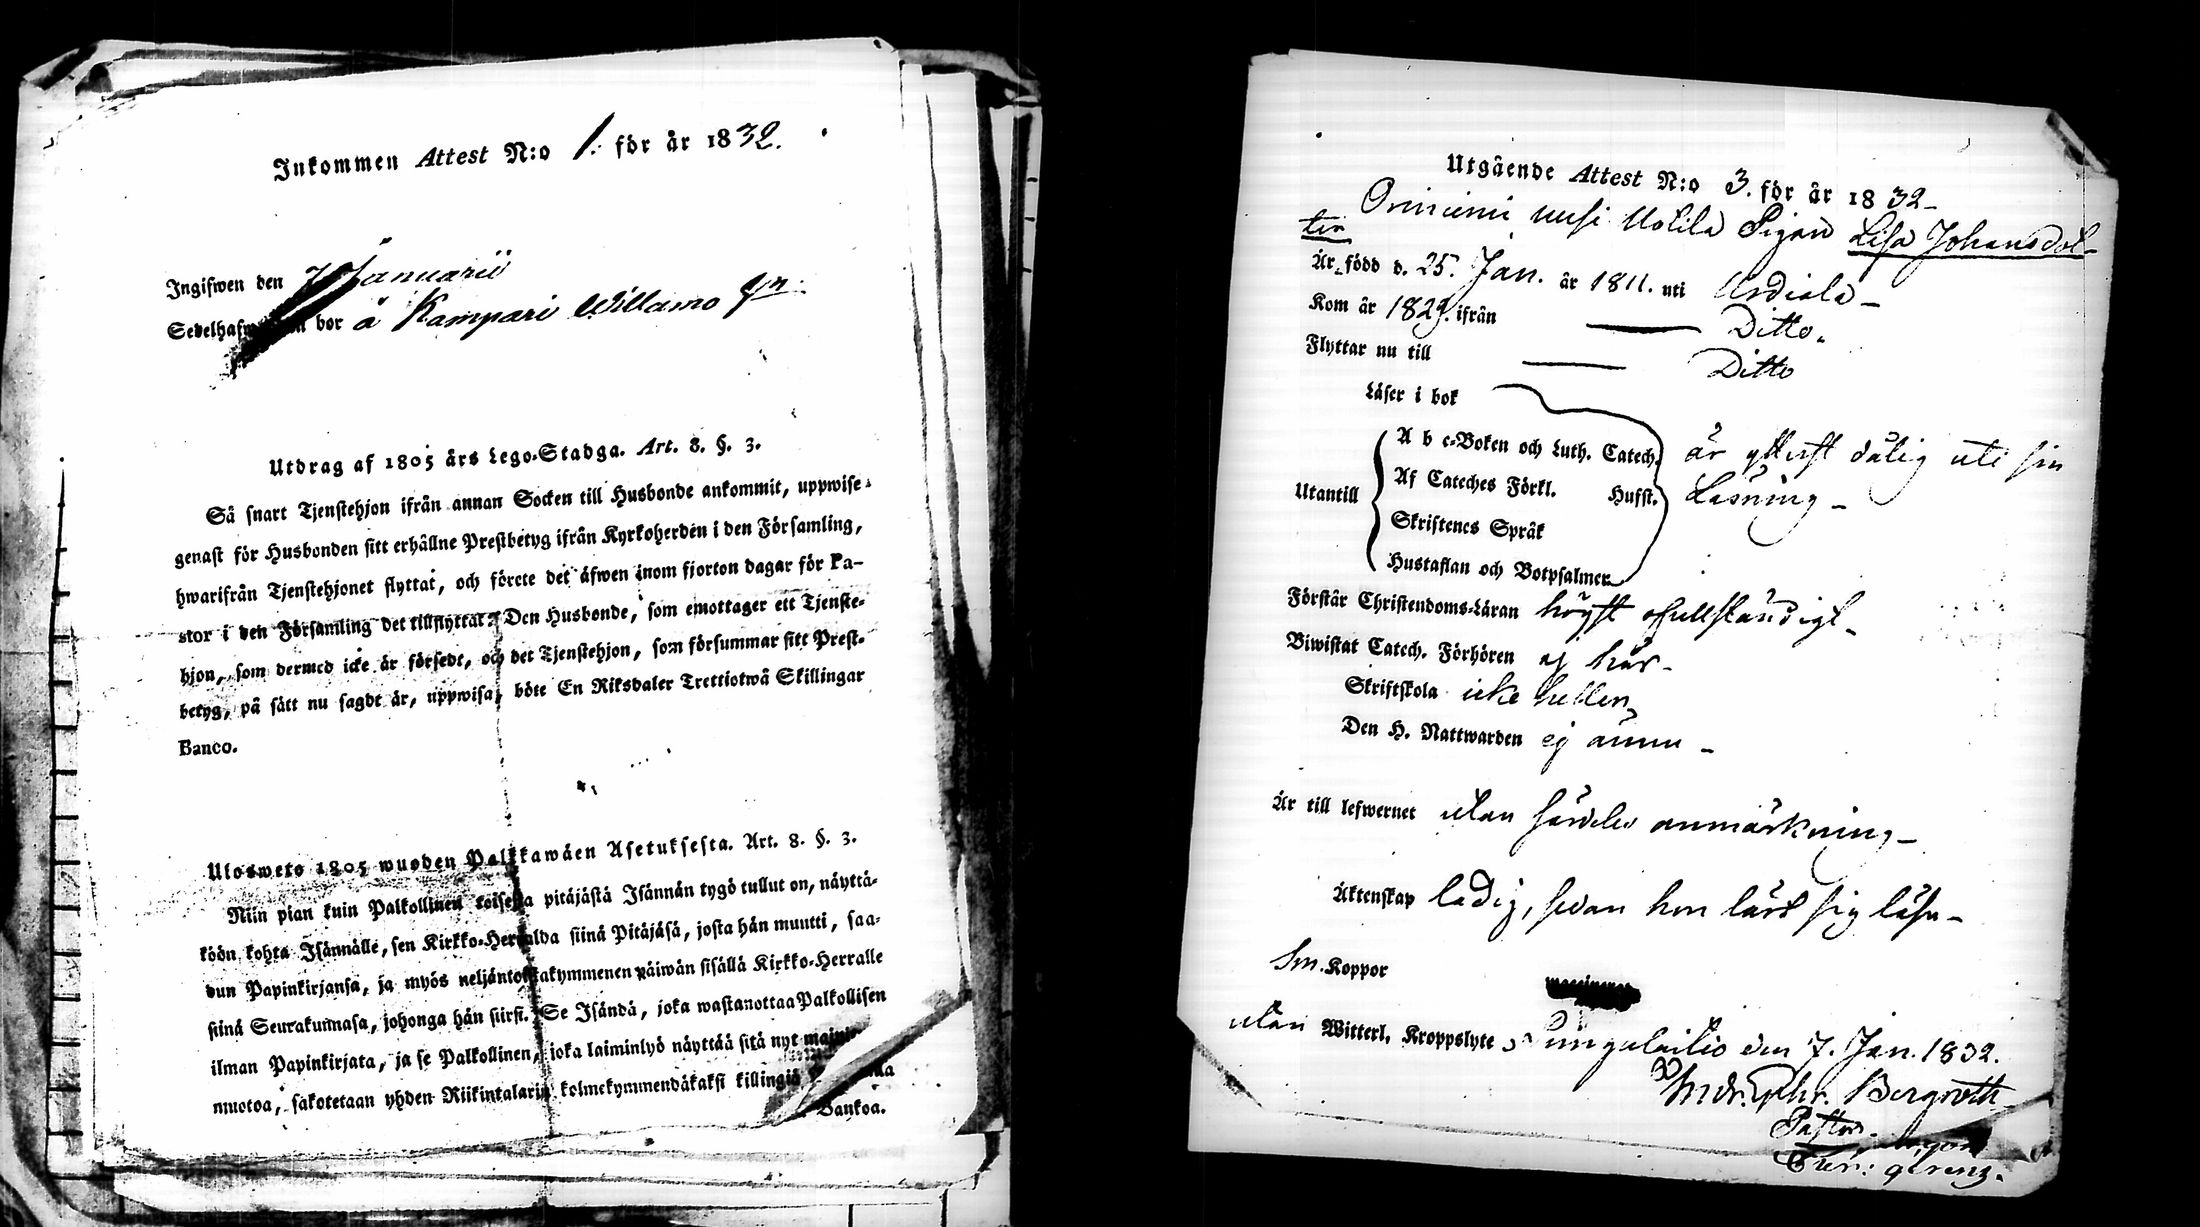 Inkommen Attest N:o 1. för år 1832.
Ingifwen den 7 Januarii
bor å Kampari Willamo
Utdrag af 1805 års Lego-Stadga. Art. 8. §. 3.
Så snart Tjenstehjon ifrån annan Socken till Husbonde ankommit, uppwise-
genast för Husbonden sitt erhållne Prestbetyg ifrån Kyrkoherden i den Församling,
hwarifrån Tjenstehjonet flyttat, och förete det äfwen inom fjorton dagar för Pa-
stor i den Församling det tillflyttat. Den Husbonde, som emottager ett Tjenste-
hjon, som dermed icke är försedt, och det Tjenstehjon, som försummar sitt Prest-
betyg, på sätt nu sagdt är, uppwisa, böte En Riksdaler Trettiotwå Skillingar
Banco.
Ulosweto 1805 wuoden Palkkawäen Asetuksesta. Art. 8. §. 3.
Niin pian kuin Palkollinen toisesta pitäjästä Isännän tygö tullut on, näyttä-
köön kohta Isännälle, sen Kirkko-Herralda siinä Pitäjäsä, josta hän muutti, saa-
dun Papinkirjansa, ja myös neljäntoistakymmenen päiwän sisällä Kirkko-Herralle
siinä Seurakunnasa, johonga hän siirsi. Se Isändä, joka wastanottaa Palkollisen
ilman Papinkirjata, ja se Palkollinen, joka laiminlyö näyttää sitä nyt
muotoa, sakotetaan yhden Riikintalarin kolmekymmendäkaksi killingiä
Bankoa.
Utgående Attest N:o 3. för år 1832-
uusi Uotila Pigan Lisa Johansdot-
ter
Är född d. 25. Jan. år 1811. uti Urdiala-
Kom år 1829. ifrån — Ditto.
Flyttar nu till — Ditto
Läser i bok
A b c-Boken och Luth. Catech. är ytterst dålig uti sin
Utantill Af Cateches Förkl. Hufst. Läsning-
Skriftenes Språk
Hustaflan och Botpsalmer
Förstår Christendoms-Läran högst ofullständigt-
Biwistat Catech. Förhören ej här-
Skriftskola icke heller,
Den H. Nattwarden ej ännu-
Är till lefwernet utan särdeles anmärkning-
Äktenskap ledig, sedan hon lärt sig läsa-
Koppor
utan Witterl. Kroppslyte den 7. Jan. 1832.
Bergroth
Pastor.